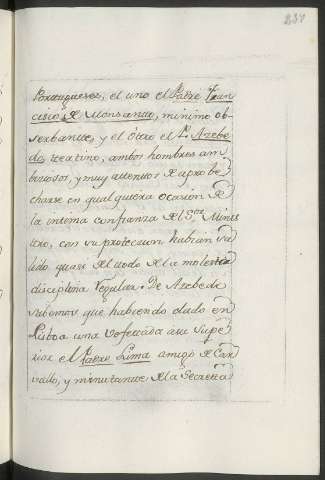 237
Portugueses, el uno el Padre Fran
cisco de Monsanto, minimo ob
serbante, y el otro el P. Azebe
do, teatino, ambos hombres am
biciosos, y muy attentos de aprobe
charse en qualquiera ocasion de
la interna confianza del Sor. Minis
tro, con su proteccion habian sa
lido quasi del todo de la molesta
disciplina regular. De Azebedo
sabemos que habiendo dado en
Lisboa una bofetada a su supe
rior el Padre Lima amigo de Car
vallo, y minutante de la Secreta